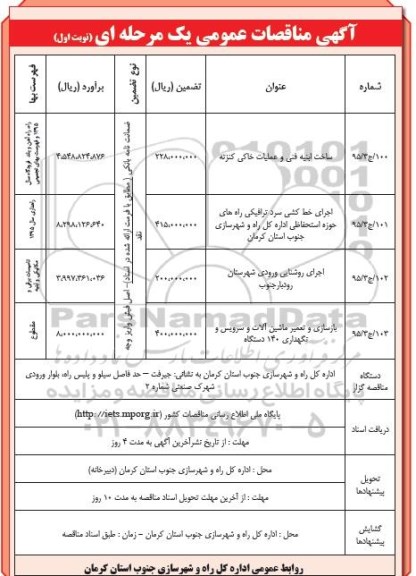 آگهی مناقصات عمومی یک مرحله ای (نوبت اول)
شماره
عنوان
تضمین (ریال)
نوع تضمین
برآورد (ریال)
فهرست بها
۹۵/۳/ج/۱۰۰
ساخت ابنیه فنی و عملیات خاکی کنزنه
۲۲۸،۰۰۰،۰۰۰
۴،۵۴۸،۸۲۴،۸۷۶
۹۵/۳/ج/۱۰۱
اجرای خط کشی سرد ترافیکی راه های
حوزه استحفاظی اداره کل راه و شهرسازی
جنوب استان کرمان
۴۱۵،۰۰۰،۰۰۰
۸،۲۹۸،۱۲۶،۶۴۰
راهداری سال ۱۳۹۵
۹۵/۳/ج/۱۰۲
اجرای روشنایی ورودی شهرستان
رودبارجنوب
۲۰۰،۰۰۰،۰۰۰
۳،۹۹۷،۳۶۱،۰۳۶
۹۵/۳/ج/۱۰۳
بازسازی و تعمیر ماشین آلات و سرویس و
نگهداری ۱۴۰ دستگاه
۴۰۰،۰۰۰،۰۰۰
۸،۰۰۰،۰۰۰،۰۰۰
مقطوع
ضمانت نامه بانکی (مطابق با فرمت ارائه شده در اسناد)- اصل فیش واریز وجه
نقد
دستگاه
مناقصه گزار
اداره کل راه و شهرسازی جنوب استان کرمان به نشانی: جیرفت – حد فاصل سیلو و پلیس راه، بلوار ورودی
شهرک صنعتی شماره ۲
دریافت اسناد
پایگاه ملی اطلاع رسانی مناقصات کشور (http://iets.mporg.ir)
مهلت : از تاریخ نشرآخرین آگهی به مدت ۴ روز
تحویل
پیشنهادها
محل : اداره کل راه و شهرسازی جنوب استان کرمان (دبیرخانه)
مهلت : از آخرین مهلت تحویل اسناد مناقصه به مدت ۱۰ روز
گشایش
پیشنهادها
محل : اداره کل راه و شهرسازی جنوب استان کرمان – زمان : طبق اسناد مناقصه
روابط عمومی اداره کل راه و شهرسازی جنوب استان کرمان
ParsNamadData
پایگاه اطلاع رسانی مناقصه و مزایده
۰۲۱-۸۸۳۴۹۶۷۰-۵